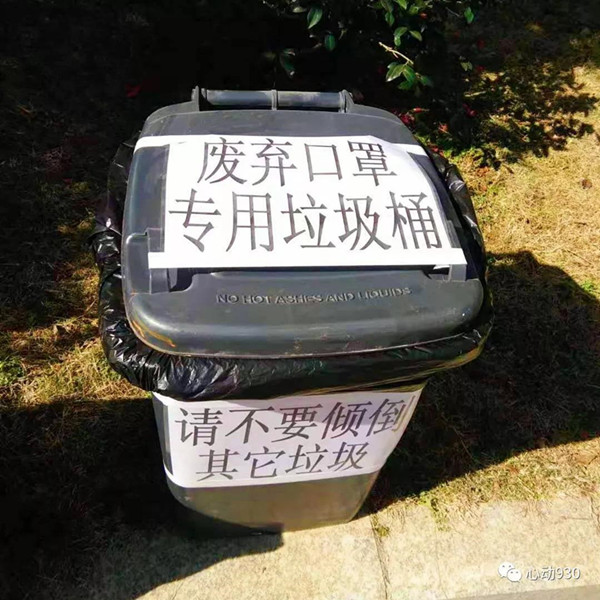 废弃口罩
专用垃圾桶
NO HOT ASHES AND LIQUIDS
请不要倾倒
其它垃圾
心动930